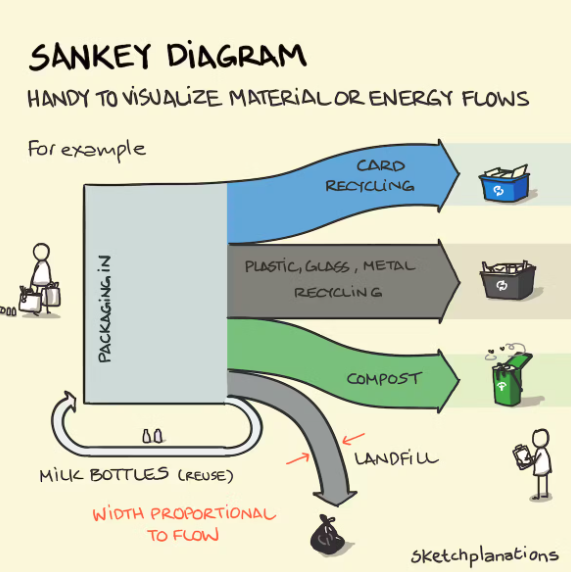 SANKEY DIAGRAM
HANDY TO VISUALIZE MATERIAL OR ENERGY FLOWS
For example
CARD
RECYCLING
PACKAGING IN
PLASTIC, GLASS, METAL
RECYCLING
COMPOST
LANDFILL
MILK BOTTLES (REUSE)
WIDTH PROPORTIONAL
TO FLOW
sketchplanations